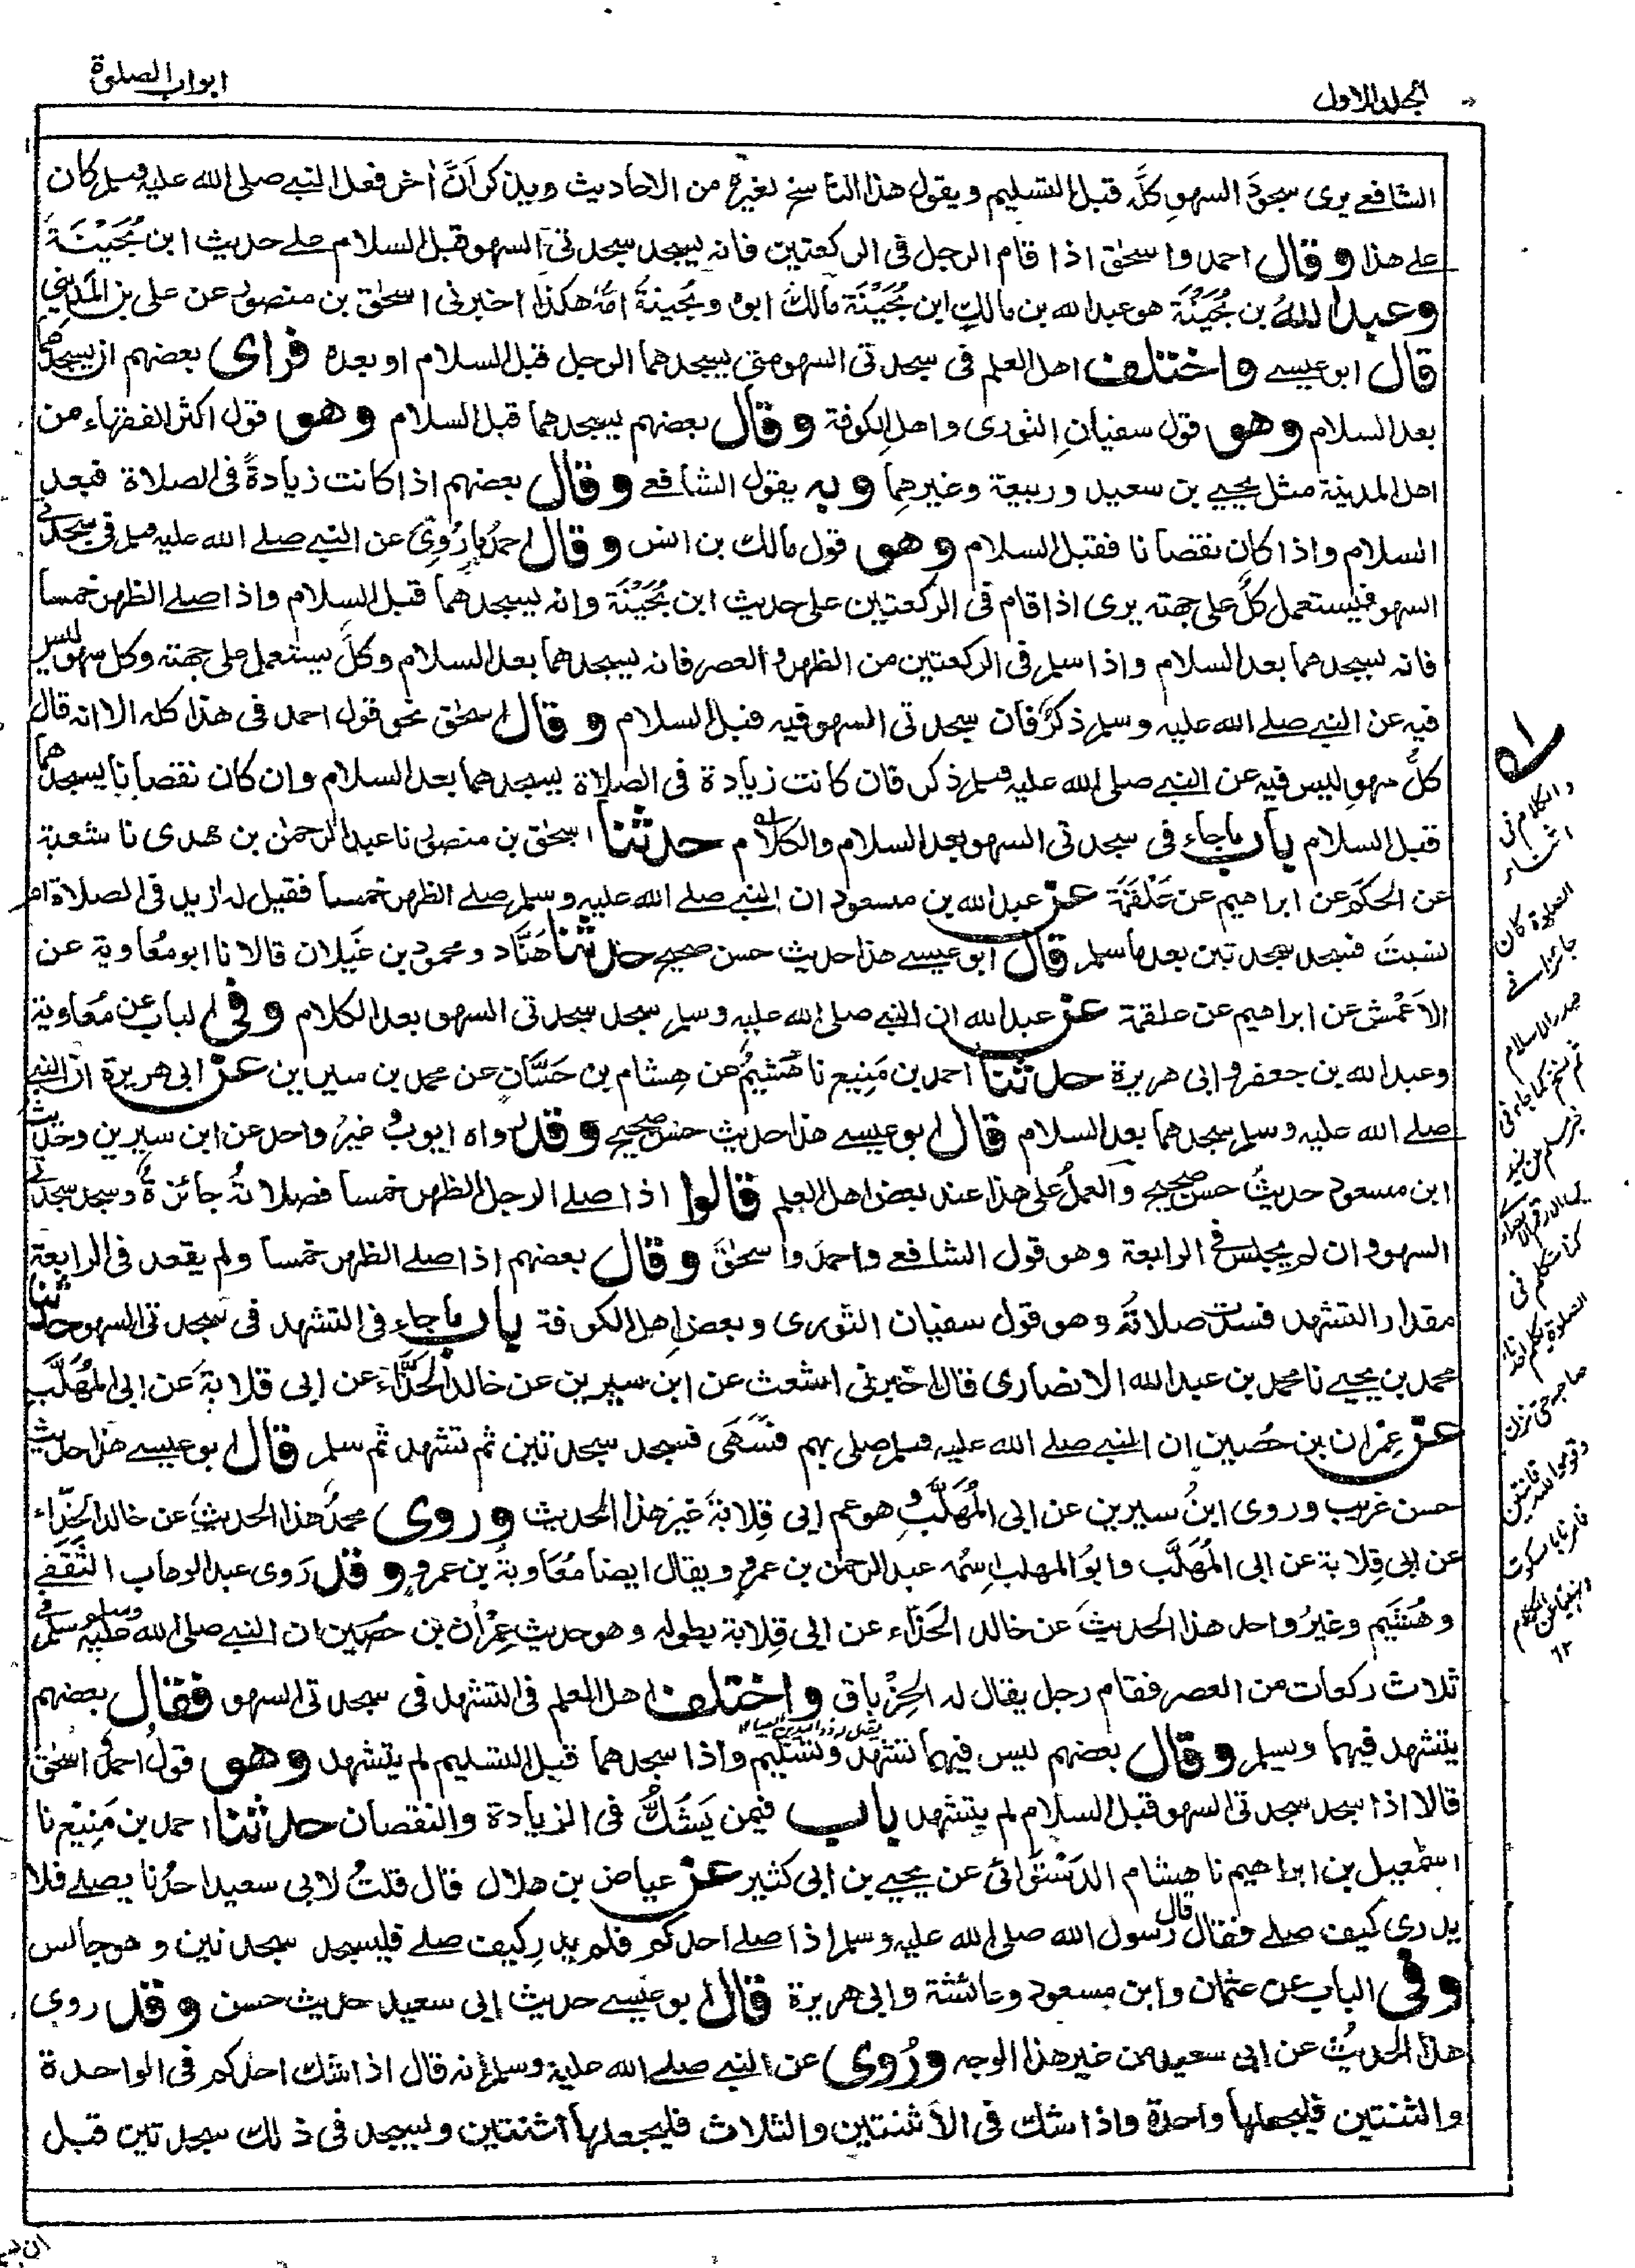 ابواب الصلوة
المجلد الاول
الشافعے يرى سجدة السهو كلَّه قبل التسليم ويقول هذا الناسخ لغيرہ من الاحاديث ويذكر انَّ اٰخر فعل النبے صلى الله عليه وسلم كان
علے هذا وقال احمد واسحٰق اذا قام الرجل فى الركعتين فانه يسجد سجدتى السهو قبل السلام علے حديث ابن بُحَيْنَةَ
وعبد اللہُ بن بُحَيْنَة هو عبد الله بن مالكٍ ابن بُحَيْنَة مالكٌ ابوہ وبُحينةُ امُّه هكذا اخبرنى اسحٰق بن منصور عن على بن المَدِينى
قال ابو عيسے واختلف اهل العلم فى سجدتى السهو متى يسجدهما الرجل قبل السلام او بعدہ فراى بعضهم ان يسجدهما
بعد السلام وهو قول سفيانِ الثورى واهل الكوفة وقال بعضهم يسجدهما قبل السلام وهو قول اكثر الفقهاء من
اهل المدينة مثل يحيے بن سعيد وربيعة وغيرهما وبه يقول الشافعے وقال بعضهم اذا كانت زيادةً فى الصلاة فبعد
السلام واذا كان نقصانا فقبل السلام وهو قول مالك بن انس وقال احمدُ ما رُوِىَ عن النبے صلے الله عليه وسلم فى سجدتى
السهو فيُستعمل كلٌّ على جهته يرى اذا قام فى الركعتين على حديث ابن بُحَيْنَة وانه يسجدهما قبل السلام واذا صلے الظهر خمسا
فانه يسجدهما بعد السلام واذا سلم فى الركعتين من الظهر والعصر فانه يسجدهما بعد السلام وكلٌّ يستعمل على جهته وكل سهو ليس
فيه عن النبے صلے الله عليه وسلم ذكرٌ فان سجدتى السهو فيه قبل السلام وقال اسحٰق نحو قول احمد فى هذا كله الا انه قال
كلُّ سهو ليس فيه عن النبے صلى الله عليه وسلم ذكر فان كانت زيادة فى الصلاة يسجدهما بعد السلام وان كان نقصانا يسجدهما
قبل السلام باب ما جاء فى سجدتى السهو بعد السلام والكلام حدثنا اسحٰق بن منصور نا عبد الرحمٰن بن مهدى نا شعبة
عن الحكم عن ابراهيم عن عَلْقَمَة عن عبد الله بن مسعود ان النبے صلے الله عليه وسلم صلے الظهر خمسا فقيل له ازيد فى الصلاة ام
نسيتَ فسجد سجدتين بعد ما سلم قال ابو عيسے هذا حديث حسن صحيح حدثنا هَنَّاد ومحمود بن غَيلان قالا نا ابو مُعاوية عن
الاَعْمَش عن ابراهيم عن علقمة عن عبد الله ان النبے صلى الله عليه وسلم سجد سجدتى السهو بعد الكلام وفى الباب عن مُعاوية
وعبد الله بن جعفر وابى هريرة حدثنا احمد بن مَنِيع نا هُشَيْمٌ عن هِشام بن حَسَّان عن محمد بن سيرين عن ابى هريرة ان النبے
صلے الله عليه وسلم سجدهما بعد السلام قال ابو عيسے هذا حديث حسن صحيح وقد رواہ ايوبُ وغيرُ واحد عن ابن سيرين وحديث
ابن مسعود حديثٌ حسن صحيح والعملُ على هذا عند بعض اهل العلم قالوا اذا صلے الرجل الظهر خمسا فصلاتُه جائزةٌ وسجد سجدتى
السهو وان لم يجلس فى الرابعة وهو قول الشافعے واحمدَ واسحٰقَ وقال بعضهم اذا صلے الظهر خمسا ولم يقعد فى الرابعة
مقدار التشهد فسدت صلاتُه وهو قول سفيان الثورى وبعض اهل الكوفة باب ما جاء فى التشهد فى سجدتى السهو حدثنا
محمد بن يحيے نا محمد بن عبد الله الانصارى قال اخبرنى اشعث عن ابن سيرين عن خالد الحَذَّاء عن ابى قلابة عن ابى المُهَلَّب
عن عِمْران بن حُصين ان النبے صلے الله عليه وسلم صلى بهم فسَهَى فسجد سجدتين ثم تشهد ثم سلم قال ابو عيسے هذا حديث
حسن غريب وروى ابنُ سيرين عن ابى المُهَلَّبِ وهو عم ابى قِلابةَ غيرَ هذا الحديث وروى محمدٌ هذا الحديثَ عن خالد الحَذّاء
عن ابى قِلابة عن ابى المُهَلَّب وابوُ المهلب اِسْمُه عبد الرحمٰن بن عمرو ويقال ايضا مُعَاويةُ بن عمرو وقد رَوى عبد الوهاب الثَّقَفے
وهُشَيم وغيرُ واحد هذا الحديثَ عن خالد الحَذّاء عن ابى قِلابة بطوله وهو حديث عِمْران بن حصين ان النبے صلى الله عليه وسلم سلم فى
ثلاث ركعات من العصر فقام رجل يقال له الخِرْباق واختلف اهل العلم فى التشهد فى سجدتى السهو فقال بعضهم
يقال له ذو اليدين ايضا ١٢
يتشهد فيهما ويسلم وقال بعضهم ليس فيهما تشهد وتسليم واذا سجدهما قبل التسليم لم يتشهد وهو قول احمد واسحٰق
قالا اذا سجد سجدتى السهو قبل السلام لم يتشهد باب فيمن يَشَكُّ فى الزيادة والنقصان حدثنا احمد بن مَنِيْع نا
اسمٰعيل بن ابراهيم نا هشام الدَسْتَوائى عن يحيے بن ابى كثير عن عياض بن هلال قال قلتُ لابى سعيد احدُنا يصلے فلا
يدرى كيف صلے فقال قال رسول الله صلى الله عليه وسلم اذا صلے احدكم فلم يدرِ كيف صلے فليسجد سجدتين وهو جالس
وفى الباب عن عثمان وابن مسعود وعائشة وابى هريرة قال ابو عيسے حديث ابى سعيد حديث حسن وقد روى
هذا الحديثُ عن ابى سعيد من غير هذا الوجه ورُوى عن النبے صلے الله عليه وسلم انه قال اذا شك احدكم فى الواحدة
والثنتين فليجعلها واحدة واذا شك فى الاثنتين والثلاث فليجعلها اثنتين ويسجد فى ذلك سجدتين قبل
والكلام فى
اثناء
الصلوة كان
جائزا فے
صدر الاسلام
ثم نسخ كما جاء فى
خبر مسلم عن زيد
كنا نتكلم فى
الصلوة يكلم احدنا
صاحبه حتى نزلت
وقوموا لله قانتين
فامرنا بالسكوت
ونهينا عن الكلام
١٢